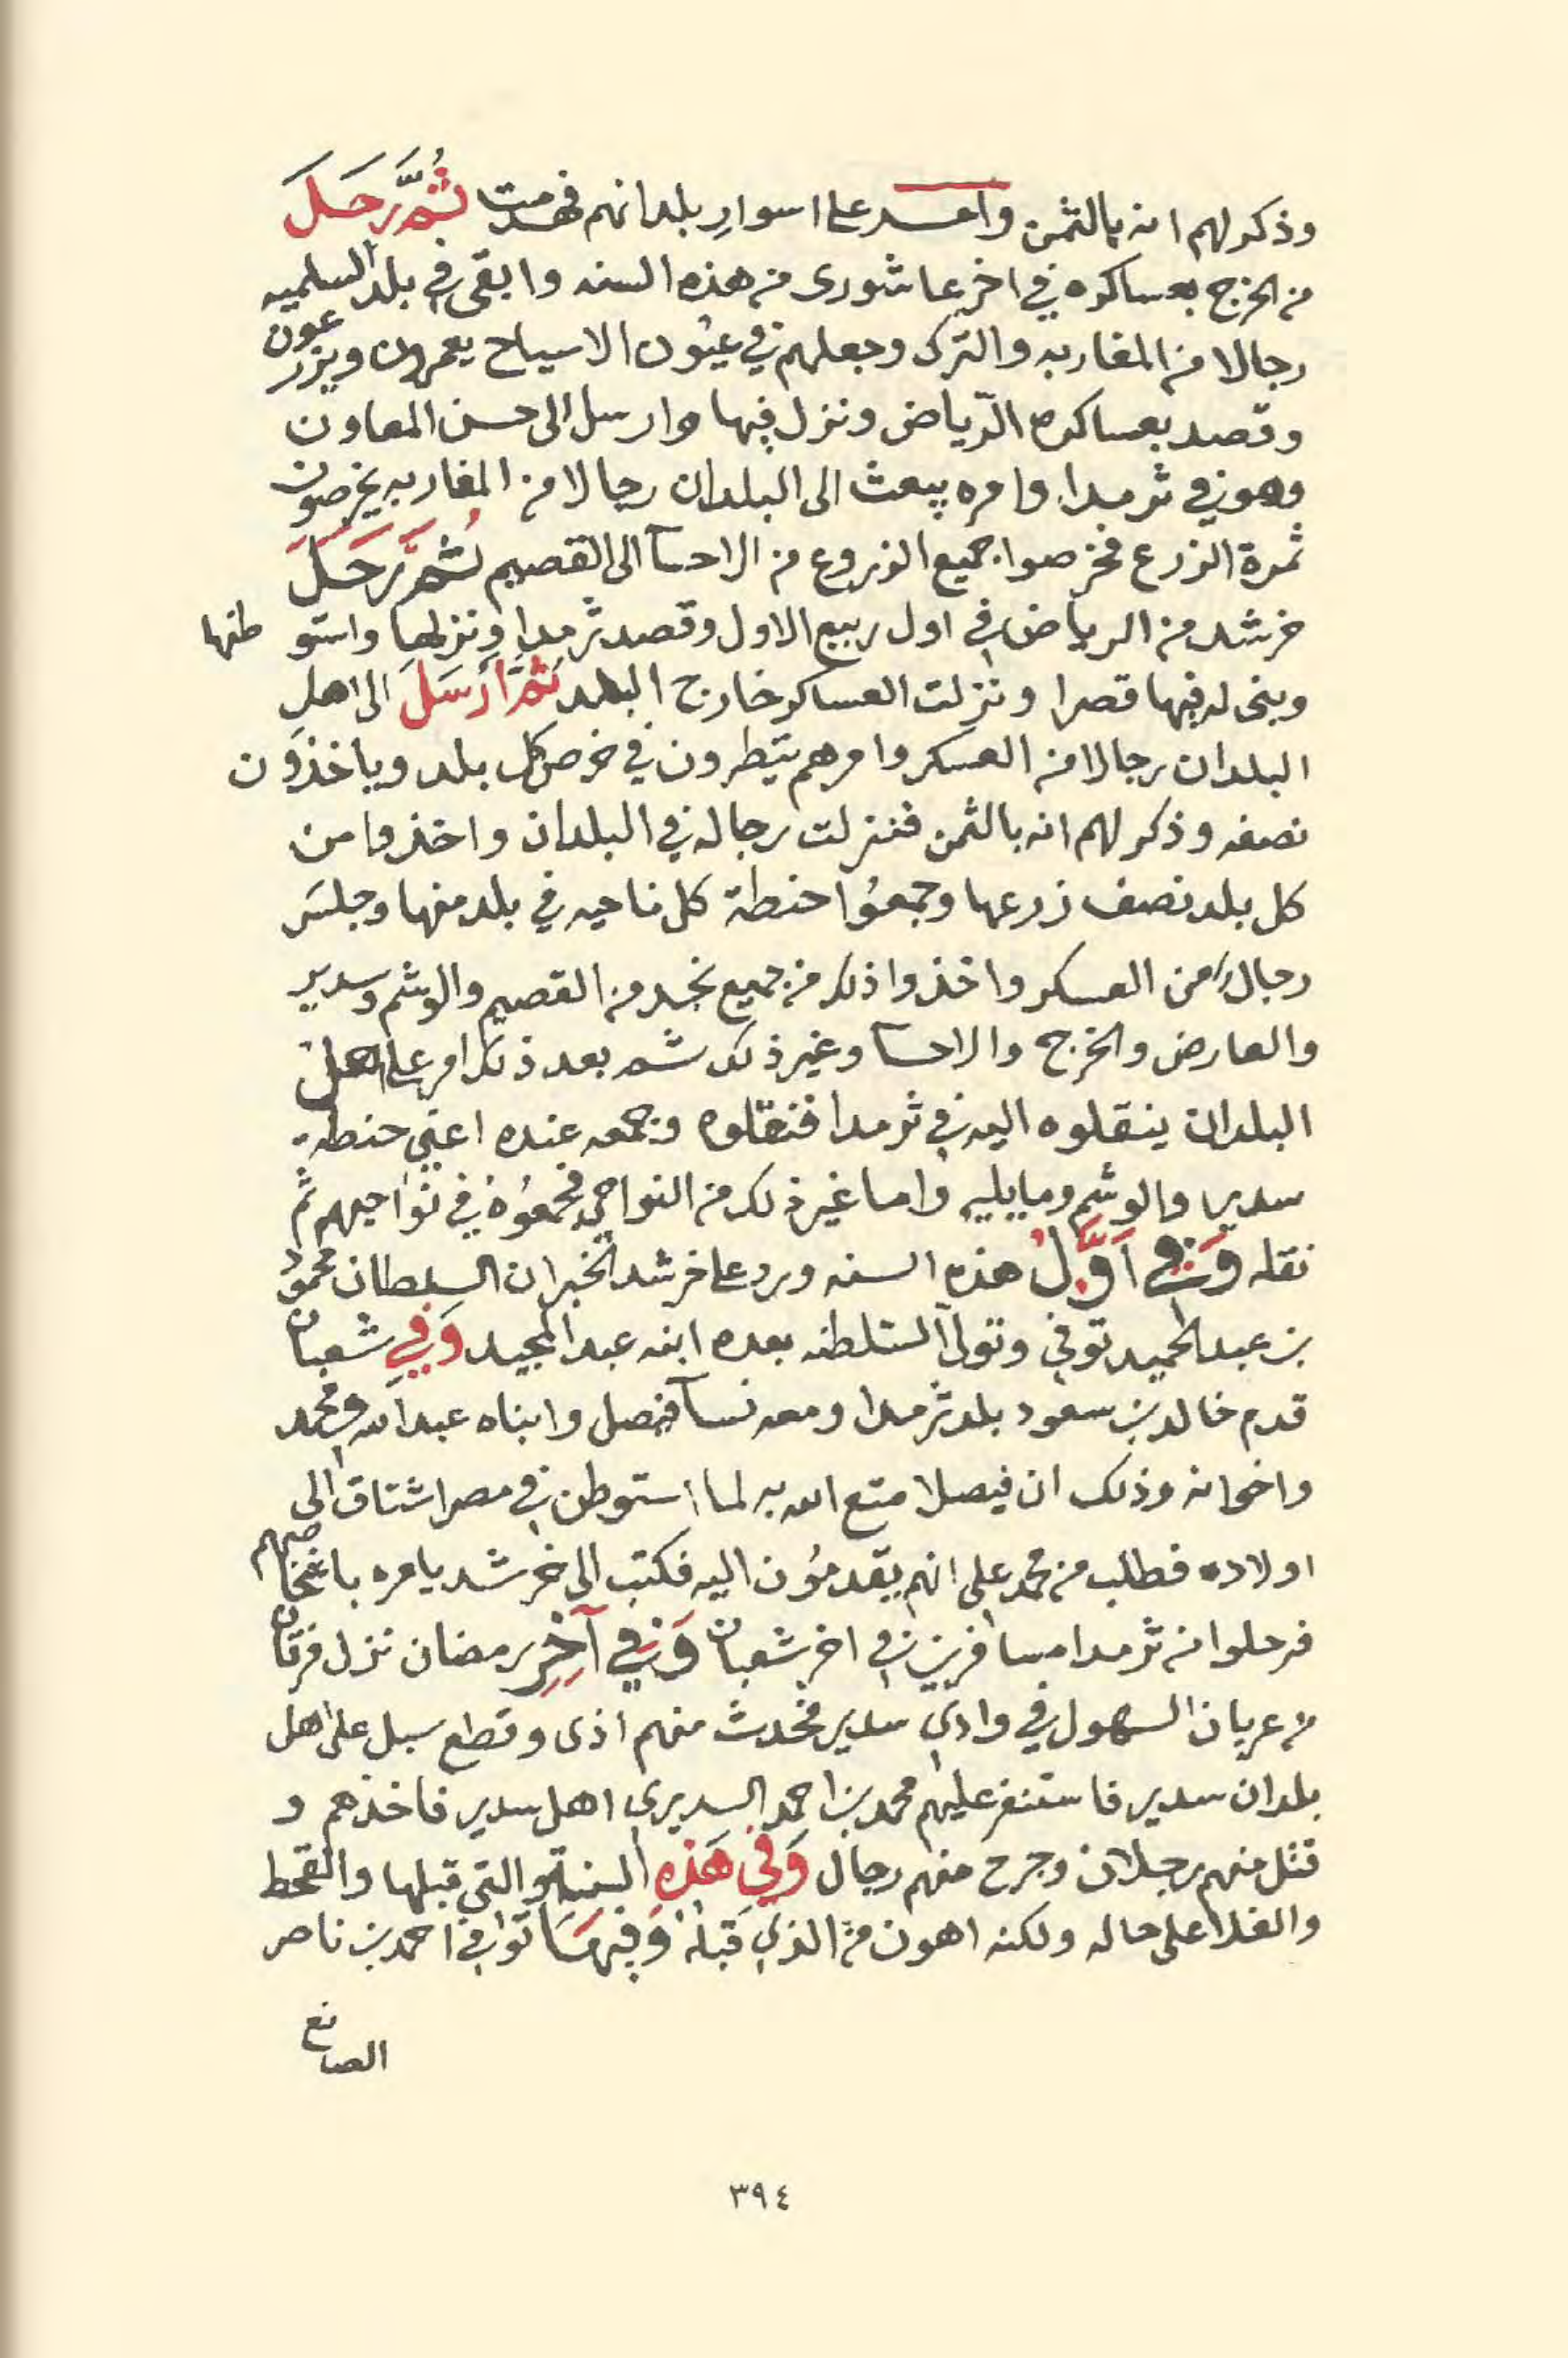 وذكر لهم انه بالثمن وامر على اسوارِ بلدانهم فهدمت ثُمَّ رَحَلَ
من الخرج بعساكره في اخر عاشورى من هذه السنه وابقى في بلد السلميه
رجالا من المغاربه والترك وجعلهم في عيُون الاسياح يعمرون ويزرعون
وقصد بعساكره الرّياض ونزل فيها وارسل الى حسن المعاون
وهو في ثرمدا وامره يبعث الى البلدان رجالا من المغاربه يخرصون
ثمرة الزرع فخرصوا جميع الزروع من الاحسآ الى القصيم ثُمَّ رَحَلَ
خرشد من الرياض في اول ربيع الاول وقصد ثرمدا ونزلها واستوطنها
وبنى له فيها قصرا ونزلت العساكر خارج البلد ثُمَّ أَرسَلَ الى اهل
البلدان رجالا من العسكر وامرهم ينظرون في خرص كل بلد وياخذون
نصفه وذكر لهم انه بالثمن فنزلت رجاله في البلدان واخذوا من
كل بلد نصف زرعها وجمعُوا حنطة كل ناحيه في بلد منها وجلسَ
رجالٌ من العسكر واخذوا ذلك من جميع نجد من القصيم والوشم وسدير
والعارض والخرج والاحسآ وغير ذلك ثم بعد ذلك امر على اهل
البلدان ينقلوه اليه في ثرمدا فنقلوه وجمعه عنده اعني حنطة
سدير والوشم ومايليه واما غير ذلك من النواحي فجمعُوهُ في نواحيهم ثم
نقله وَفي اَوَّلُ هذه السنه ورد على خرشد الخبر ان السلطان محمود
بن عبد الحميد توفي وتولى السّلطنه بعده ابنه عبد المجيد وَفي شعبان
قدم خالد بن سعود بلد ثرمدا ومعه نسآ فيصل وابناه عبد الله ومحمد
واخوانه وذلك ان فيصلا متع الله به لما استوطن في مصر اشتاق الى
اولاده فطلب من محمد علي انهم يقدمُون اليه فكتب الى خرشد يامره باشخاصهم
فرحلوا من ثرمدا مسافرين في اخر شعبان وَفي آخِرِ رمضان نزل فرقان
من عربان السهول في وادي سدير فحدث منهم اذى وقطع سبل على اهل
بلدان سدير فاستنفر عليهم محمد بن احمد السديري اهل سدير فاخذهم و
قتل منهم رجلان وجرح منهم رجال وَفي هَذِهِ السنة والتي قبلها والقحط
والغلا على حاله ولكنه اهون من الذي قبلهُ وَفِيهَا توفي احمد بن ناصر
الصانع
٣٩٤